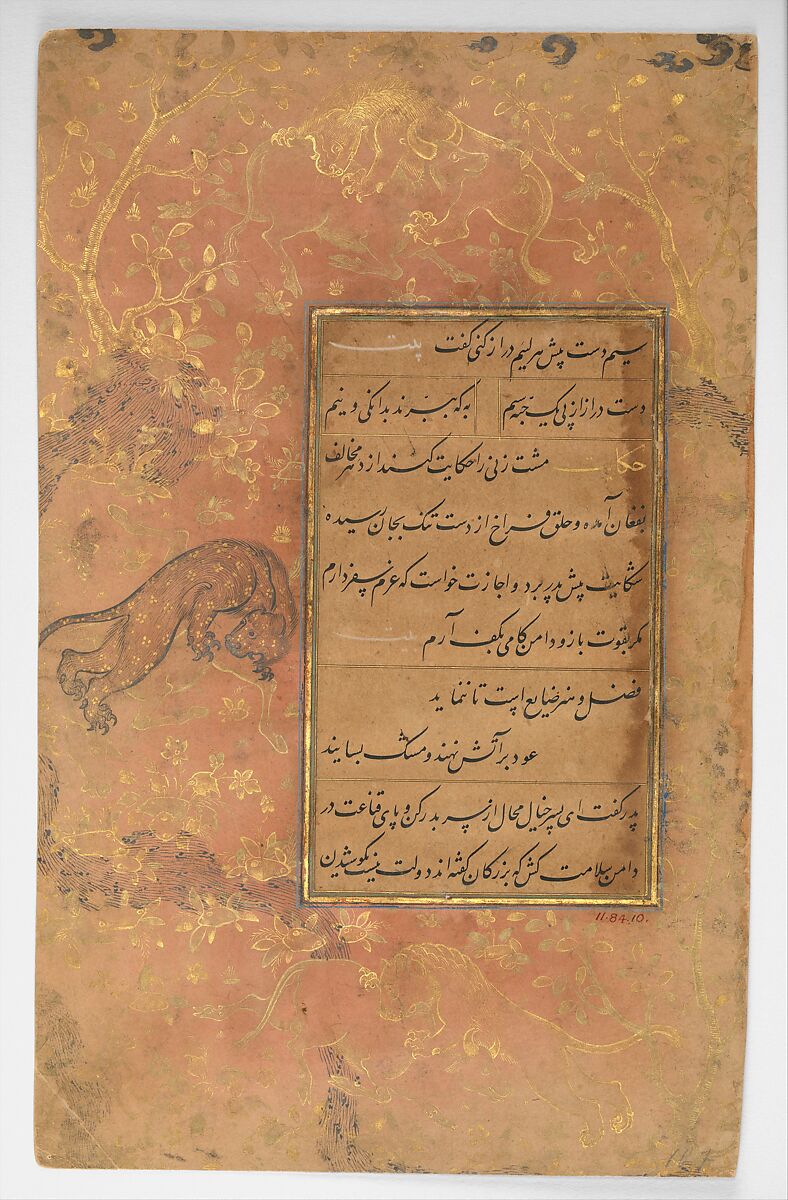 سیم دست پیش هر لئیم دراز کنی گفت بیت
دست دراز از پی یک حبه سیم به که ببرند بدانکی و نیم
حکایت مشت زنی را حکایت کنند از دهر مخالف
بفغان آمده و حلق فراخ از دست تنک بجان رسیده
شکایت پیش پدر برد و اجازت خواست که عزم سفر دارم
مکر بقوت بازو دامن کامی بکف آرم بیت
فضل و هنر ضایع است تا ننماید
عود بر آتش نهند و مشک بسایند
پدر گفت ای پسر خیال محال از سر بدر کن و پای قناعت در
دامن سلامت کش که بزرکان کفته اند دولت نیست کوشیدن
11.84.10.